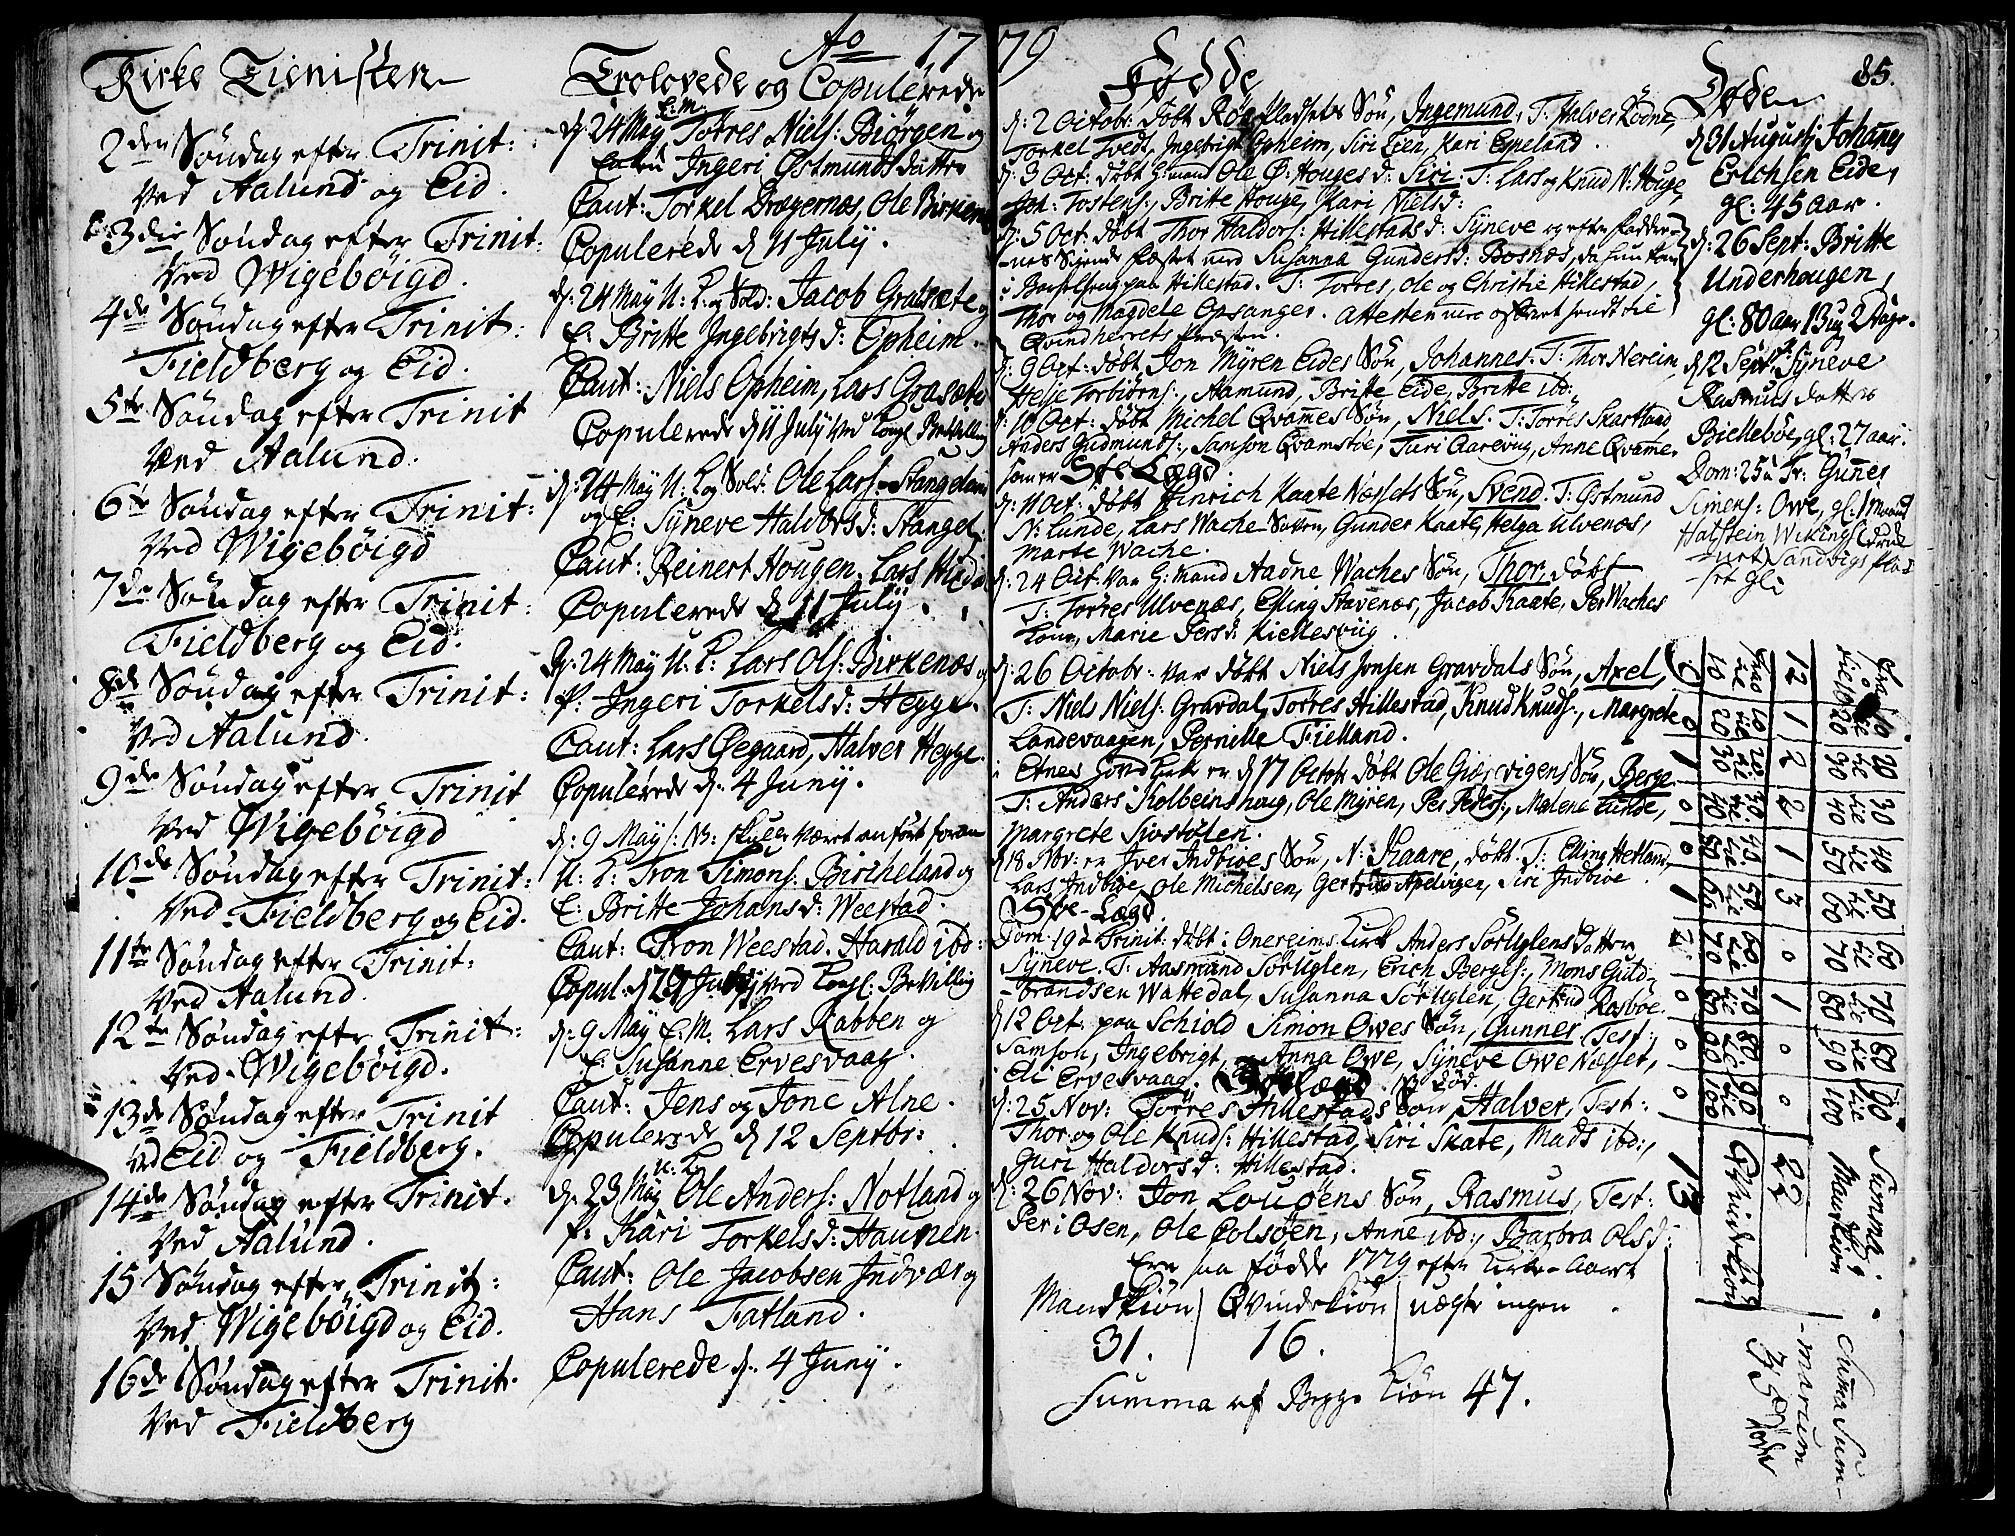 Ao 1779
85.
Kirke Tienisten
2den Søndag efter Trinit:
Ved Aalund og Eid.
3die Søndag efter Trinit:
Ved Wigebøigd.
4de Søndag efter Trinit:
Fieldberg og Eid.
5te Søndag efter Trinit
Ved Aalund.
6te Søndag efter Trinit:
Ved Wigebøigd
7de Søndag efter Trinit:
Fieldberg og Eid.
8de Søndag efter Trinit:
Ved Aalund.
9de Søndag efter Trinit
Ved Wigebøigd
10de Søndag efter Trinit:
Ved Fieldberg og Eid.
11te Søndag efter Trinit:
Ved Aalund.
12te Søndag efter Trinit:
Ved Wigebøigd.
13de Søndag efter Trinit
ved Eid og Fieldberg.
14de Søndag efter Trinit.
Ved Aalund.
15 Søndag efter Trinit:
Ved Wigebøigd og Eid.
16de Søndag efter Trinit.
Ved Fieldberg
Trolovede og Copulerede
d: 24 May E: M. Tørres Niels: Biørgen og
Enken Ingeri Østmunds datter
Caut: Torkel Dragernæs, Ole Birkenæs
Copulerede d 11 July.
d: 24 May U: K: og Sold: Jacob Gratnæte og
E: Britte Ingebrigts d: Opheim.
Caut: Niels Opheim, Lars Grasæte
Copulerede d 11 July ved Kongl Bevilling
d: 24 May U: K og Sold: Ole Lars: Stangeland
og E: Syneve Haldors d: Stangel:
Caut: Reinert Hougen, Lars
Copulerede d 11 July.
d: 24 May U: K: Lars Ols: Birkenæs og
P: Ingeri Torkels d: Hegge.
Caut: Lars Øegaard, Halver Hegge.
Copulerede d: 4 Juny.
d: 9 May: NB: skulle været anført foran
U: K: Tron Simons: Bircheland og
E: Britte Johans d: Weestad.
Caut: Tron Weestad. Harald ibd:
Copul. d July ved Kongl: Bevilling
d: 9 May E. M. Lars Rabben og
E: Susanne Ervesvaag.
Caut: Jens og Jone Alne.
Copulerede d 12 Septbr:
d: 23 May U: K Ole Anders: Notland og
P: Kari Torkels d: Haunen.
Caut: Ole Jacobsen Indvær og
Hans Tatland.
Copulerede d: 4 Juny.
Fødde
d: 2 Octobr: døbt Røe Pladsets Søn, Ingemund, T: Halver Rødne,
Torkel Tvedt, Ingebrigt Opheim, Siri Lien, Kari Espeland.
d: 3 Oct: døbt G: mand Ole Ø: Houges d: Siri. T: Lars og Knud N: Houge,
Jon: Tostens:, Britte Houge, Kari Niels d:
d: 5 Oct: døbt Thor Haldors: Hillestads d: Syneve og efter Fadder-
nes Sigende Fæstet med Susanna Gunders d: Bosnæs, da hun kom
i Barselseng paa Hillestad. T: Torres, Ole og Christie Hillestad,
Thor og Magdele Opsanger. Attesten
Qvindherrets Præsten.
d: 9 Oct: døbt Jon Myren Eides Søn, Johannes. T: Thor Nereim,
Helje Torbiørns:, Aamund, Britte Eide, Britte ibd:
d: 10 Oct: døbt Michel Qvames Søn, Niels. T: Torres Skartland,
Anders Gudmunds:, Samson Qvamstøe, Turi Aarevug, Anne Qvame.
som er Sfe Lægd.
d: 11 Oct: døbt Hinrich Kaate Næssets Søn, Svend. T: Østmund
N: Lunde, Lars Wache Søen, Gunder Kaate, Helga Ulvenæs,
Marte Wache.
d: 24 Oct: var G: mand Aadne Waches Søn, Thor, døbt
T: Tørres Ulvenæs, Elling Stavenæs, Jacob Kaate, Per Waches
Kone, Marie Pers d: Kiellesvüg.
d: 26 Octobr: var døbt Niels Jonsen Gravdals Søn, Axel,
T: Niels Niels: Gravdal, Tørres Hillestad, Knud Knuds:, Margrete
Landevaagen, Pernille Fielland.
i Etnes Sond Lagt er d 17 Octobr døbt Ole Giersvigens Søn, Berge
T: Anders Kolbeinshaug, Ole Myren, Per Peders:, Malena Lunde,
Margrete Sivstølen.
d 18 Nov: er Iver Indbioes Søn, N: Kaare, døbt. T: Elling Hetland,
Lars Indbioe, Ole Michelsen, Gertrud Apelvigen, Siri Indbioe.
Søe-Lægd.
Dom: 19 à Trinit: døbt i Onereims Kirke Anders Sørüglens Datter
Syneve. T: Aasmund Sørüglen, Erich Bergs:, Mons Guld-
brandsen Wattedal, Susanna Sørüglen, Gertrud Rosbøe.
d 12 Oct: paa Schiold Simon Owes Søn, Gunner, Test:,
Samson, Ingebrigt, Anna Owe, Syneve Owe Næsset,
Eli Ervesvaag.
d: 25 Nov: Tørres Hillestads Søn, Halver, Test:
Thor og Ole Knuds: Hillestad, Siri Skate, Mads ibd:,
Guri Haldors d: Hillestad.
d: 26 Nov: Jon Lougøens Søn, Rasmus, Test:
Per i Osen, Ole Colsøen, Anne ibd:, Barbra Ols d:
Ere saa fødde 1779 efter Kirke-Aaret
Mandkiøn | Qvindekiøn | uægte ingen.
31. | 16.
Summa af Begge Kiøn 47.
Døden
d 31 Augusti Johanes
Erichsen Eide,
gl: 45 aar.
d: 26 Sept: Britte
Underhougen,
gl: 80 aar 13 ug 2 Dage.
d 12 Sept: Syneve
Rasmus datter
Biellebøe, gl: 27 aar.
Dom: 25 à Tr: Guner
Simens: Owe, gl: 1 Maaned
Halstein Wikings
Sandvigs
gl:
fra 0 til 10 | 10 til 20 | 20 til 30 | 30 til 40 | 40 til 50 | 50 til 60 | 60 til 70 | 70 til 80 | 80 til 90 | 90 til 100 | Summa
12 | 1 | 2 | 2 | 1 | 3 | 0 | 1 | 0 | 0 | 22 Mandkiøn
fra 0 til 10 | 10 til 20 | 20 til 30 | 30 til 40 | 40 til 50 | 50 til 60 | 60 til 70 | 70 til 80 | 80 til 90 | 90 til 100 | Qvindekiøn
9 | 0 | 1 | 0 | 0 | 1 | 2 | 0 | 0 | 0 | 13
Summa Sum-
marum
35